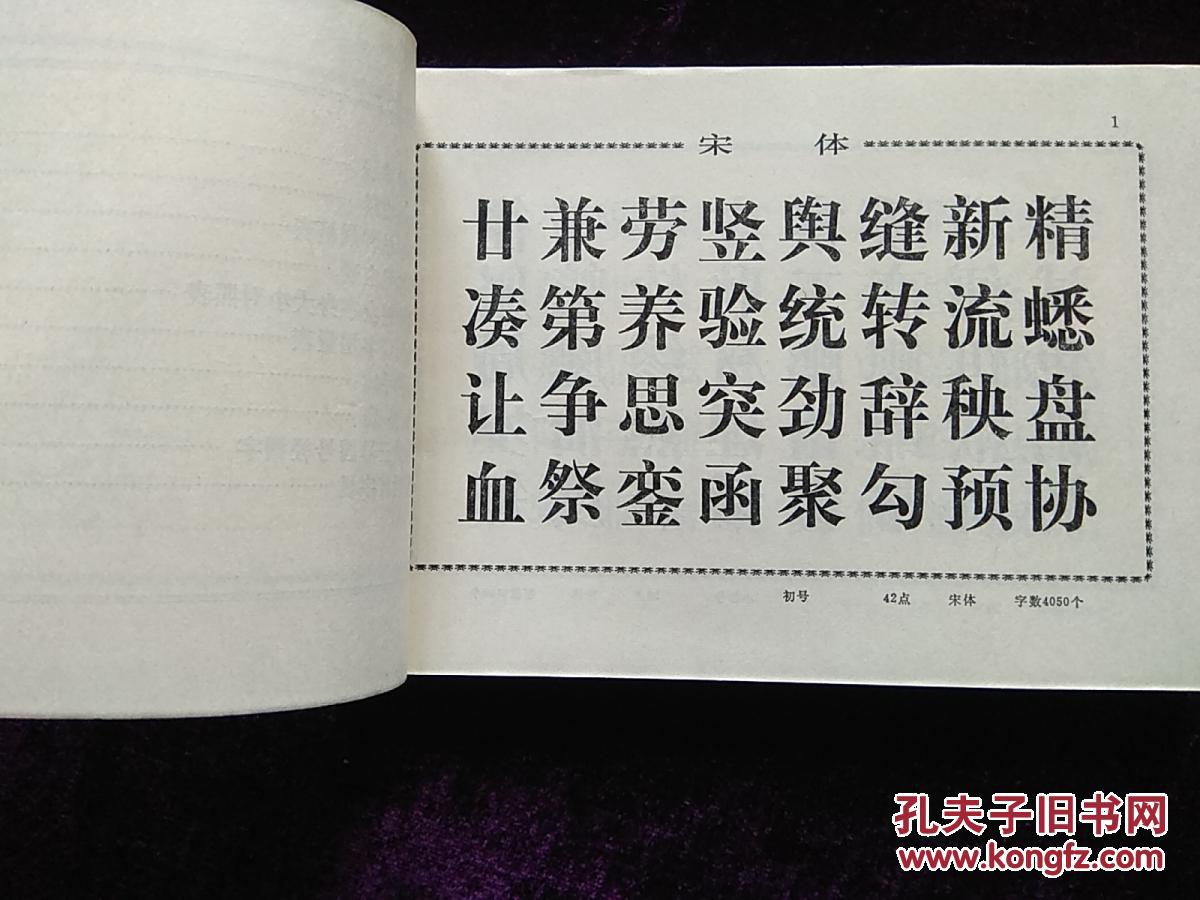 1
宋 体
廿兼劳竖舆缝新精
凑第养验统转流蟋
让争思突劲辞秧盘
血祭銮函聚勾预协
初号 42点 宋体 字数4050个
孔夫子旧书网
www.kongfz.com